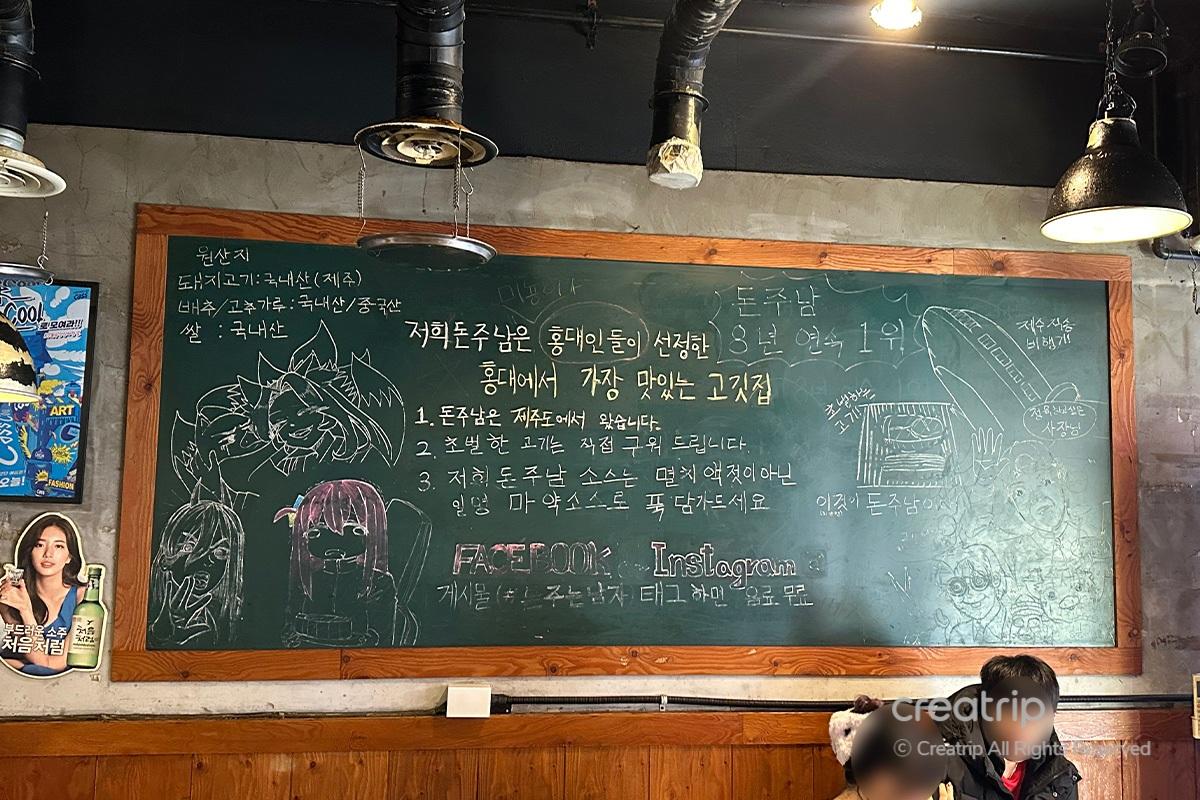 원산지
돼지고기:국내산(제주)
배추/고추가루:국내산/중국산
쌀 : 국내산
저희돈주남은 홍대인들이 선정한
홍대에서 가장 맛있는 고깃집
1. 돈주남은 제주도에서 왔습니다.
2. 초벌한 고기는 직접 구워 드립니다.
3. 저희 돈주남 소스는 멸치액젓이아닌
일명 마약소스로 푹 담가드세요
FACEBOOK Instagram
게시물 태그하면 음료 무료
돈주남
3년 연속 1위
제주직송
비행기
사장님
초벌하는
고기
이것이 돈주남
COOL
ART
FASHION
부드러운 소주
처음처럼
creatrip
© Creatrip All Rights Reserved